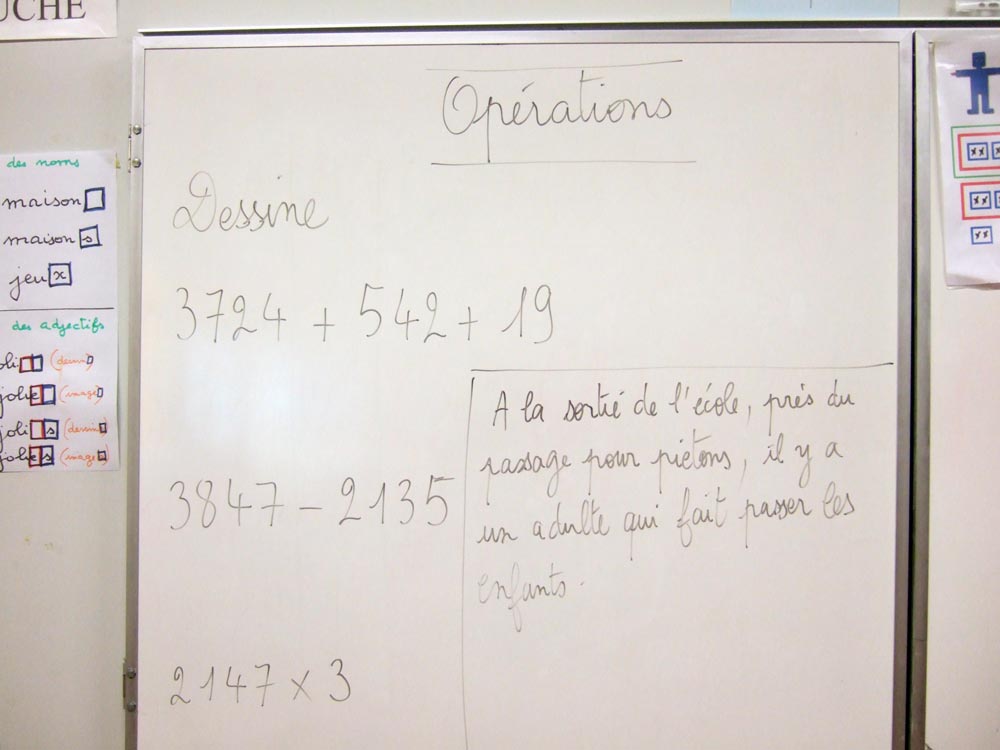 UCHE
des noms
maison
maison s
jeu x
des adjectifs
joli (dessin)
jolie (image)
joli s (dessins)
jolies (images)
Opérations
Dessine
3724 + 542 + 19
3847 - 2135
2147 x 3
A la sortie de l'école, près du
passage pour piétons, il y a
un adulte qui fait passer les
enfants.